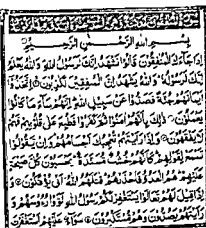 بِسْمِ اللهِ الرَّحْمٰنِ الرَّحِيْمِ
إِذَا جَاءَكَ الْمُنٰفِقُونَ قَالُوا نَشْهَدُ إِنَّكَ لَرَسُولُ اللهِ وَاللهُ يَعْلَمُ
إِنَّكَ لَرَسُولُهُ وَاللهُ يَشْهَدُ إِنَّ الْمُنٰفِقِينَ لَكٰذِبُونَ اتَّخَذُوا
أَيْمَانَهُمْ جُنَّةً فَصَدُّوا عَنْ سَبِيلِ اللهِ إِنَّهُمْ سَاءَ مَا كَانُوا
يَعْمَلُونَ ذٰلِكَ بِأَنَّهُمْ آمَنُوا ثُمَّ كَفَرُوا فَطُبِعَ عَلٰى قُلُوبِهِمْ فَهُمْ
لَا يَفْقَهُونَ وَإِذَا رَأَيْتَهُمْ تُعْجِبُكَ أَجْسَامُهُمْ وَإِنْ يَقُولُوا
تَسْمَعْ لِقَوْلِهِمْ كَأَنَّهُمْ خُشُبٌ مُسَنَّدَةٌ يَحْسَبُونَ كُلَّ صَيْحَةٍ
عَلَيْهِمْ هُمُ الْعَدُوُّ فَاحْذَرْهُمْ قٰتَلَهُمُ اللهُ أَنّٰى يُؤْفَكُونَ
وَإِذَا قِيلَ لَهُمْ تَعَالَوْا يَسْتَغْفِرْ لَكُمْ رَسُولُ اللهِ لَوَّوْا رُءُوسَهُمْ وَ
رَأَيْتَهُمْ يَصُدُّونَ وَهُمْ مُسْتَكْبِرُونَ سَوَاءٌ عَلَيْهِمْ أَسْتَغْفَرْتَ